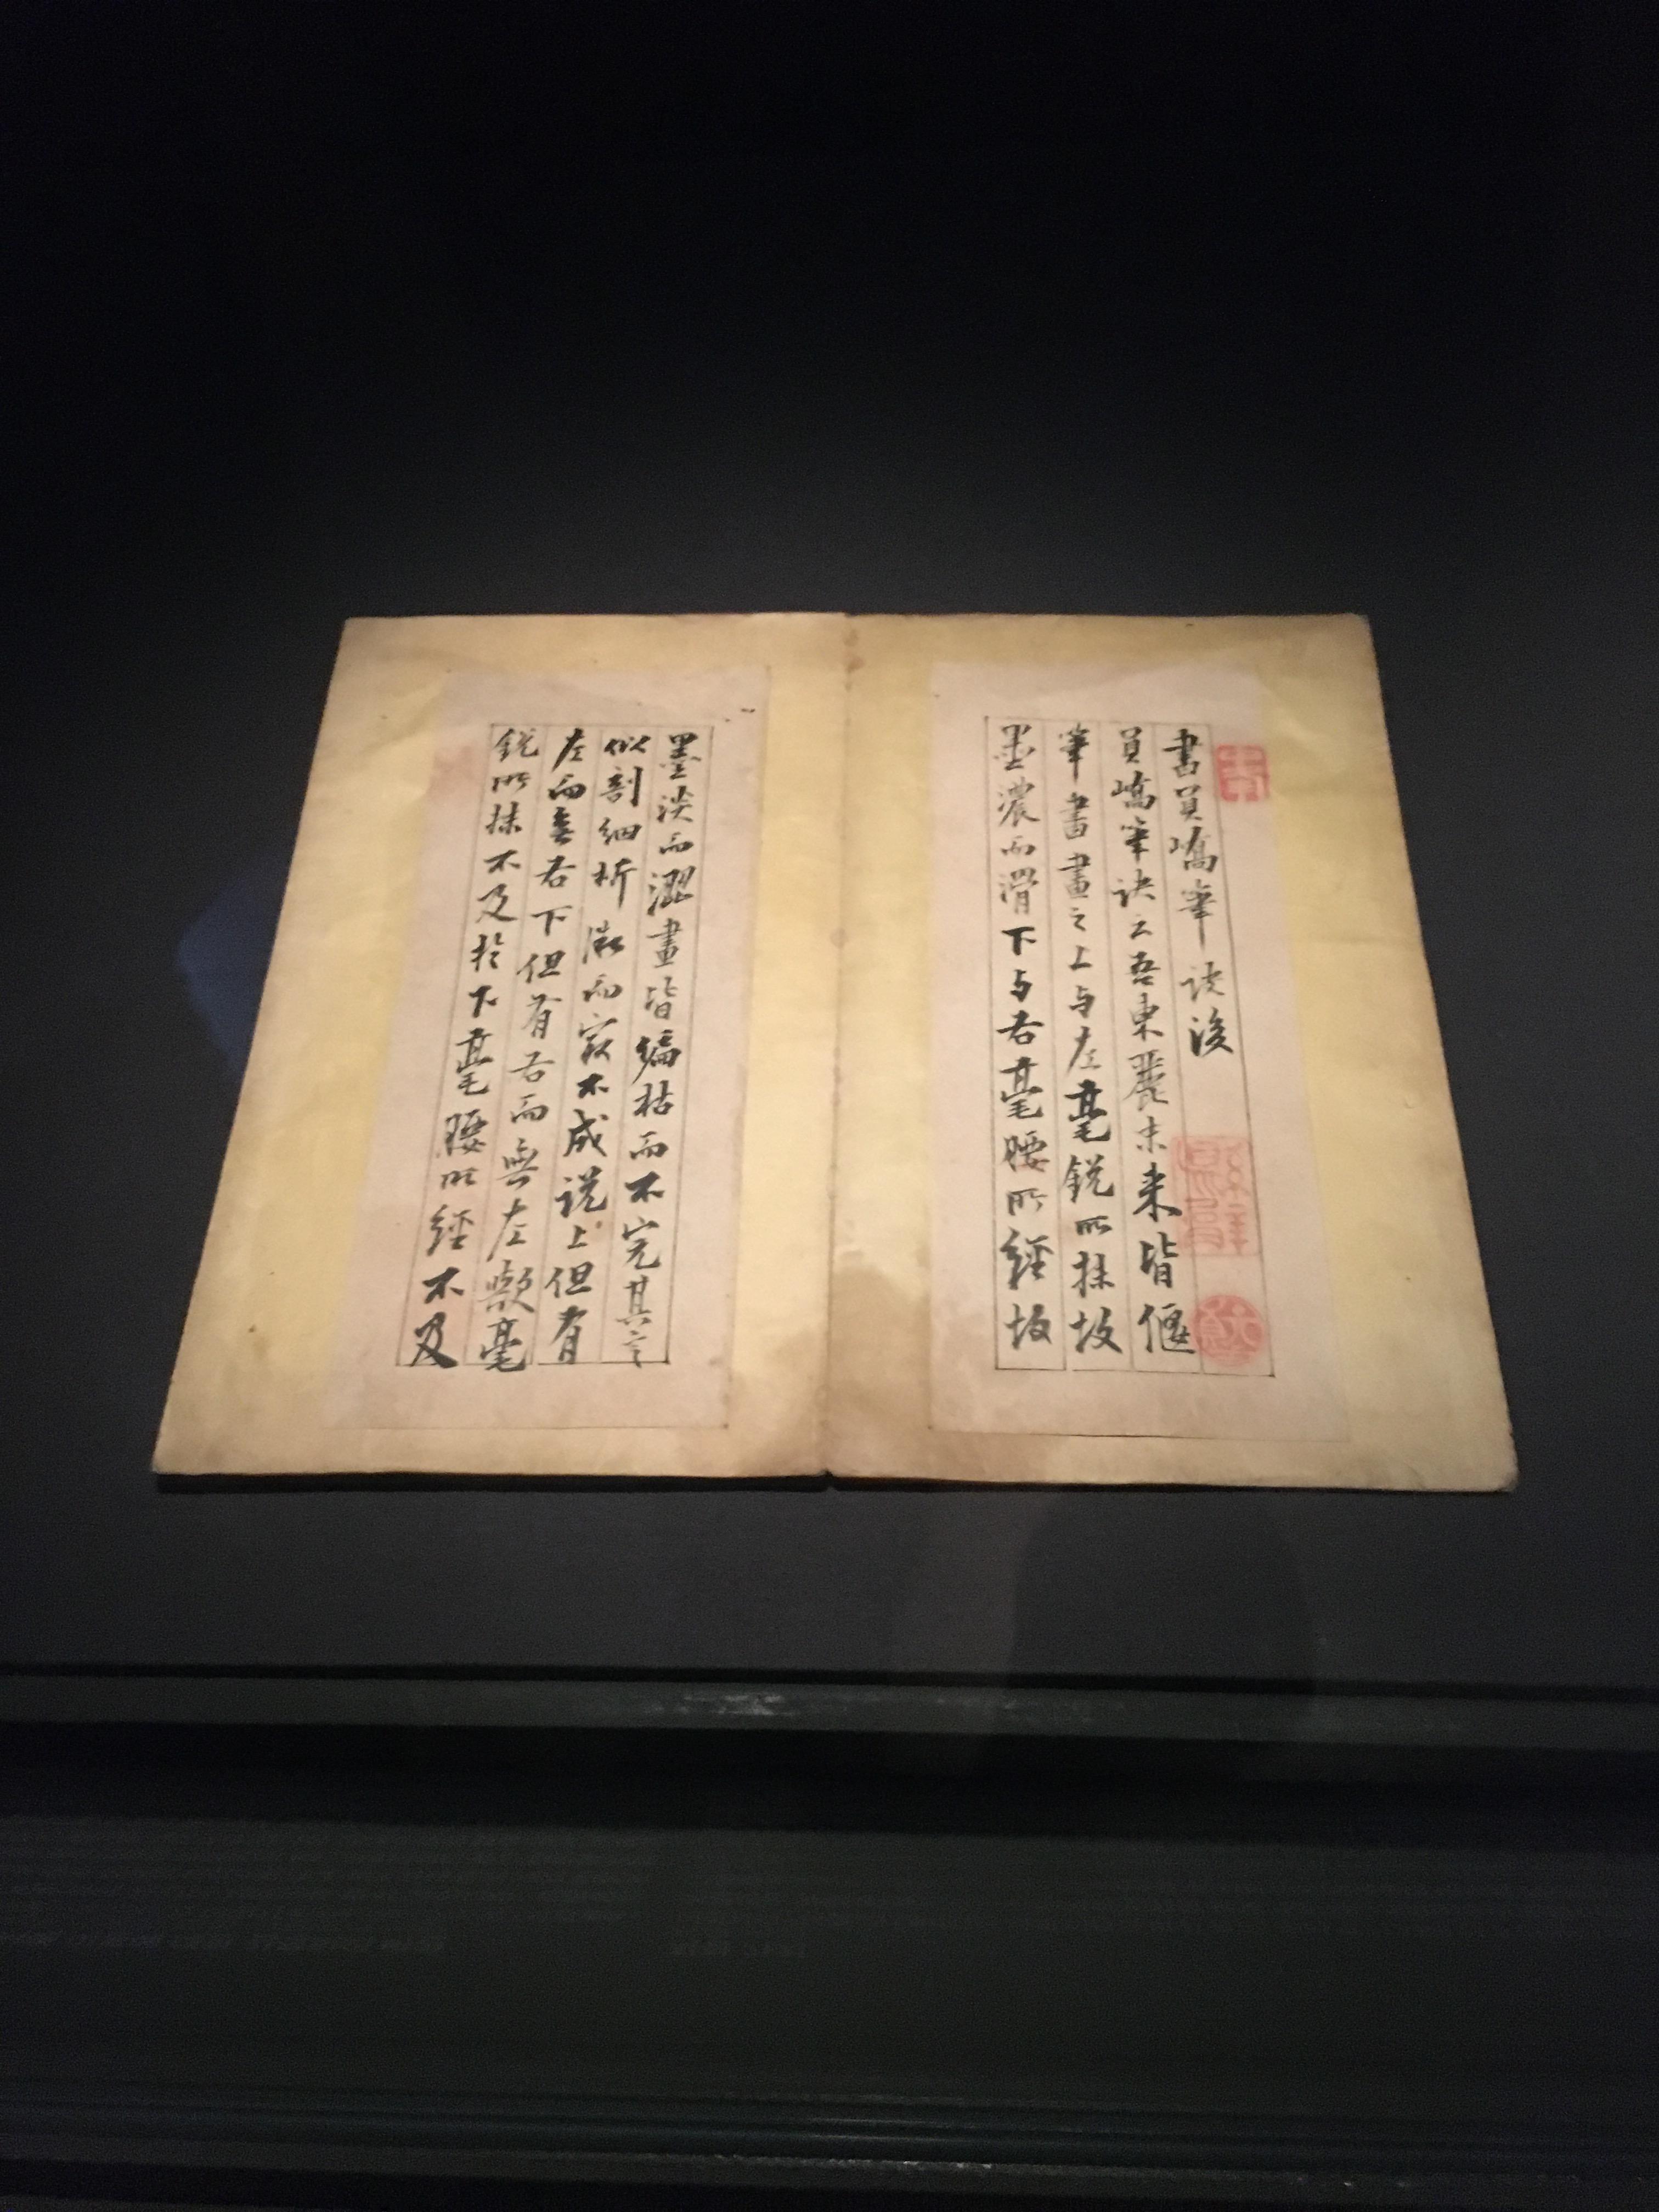 書員嶠筆訣後
員嶠筆訣云吾東麗末来皆偃
筆書畫之上与左毫銳所抹故
墨濃而滑下与右毫腰所經故
墨淡而澀畫皆偏枯而不完其言
似剖細析微而寂不成說上但有
左而無右下但有右而無左歟毫
銳所抹不及於下毫腰所經不及